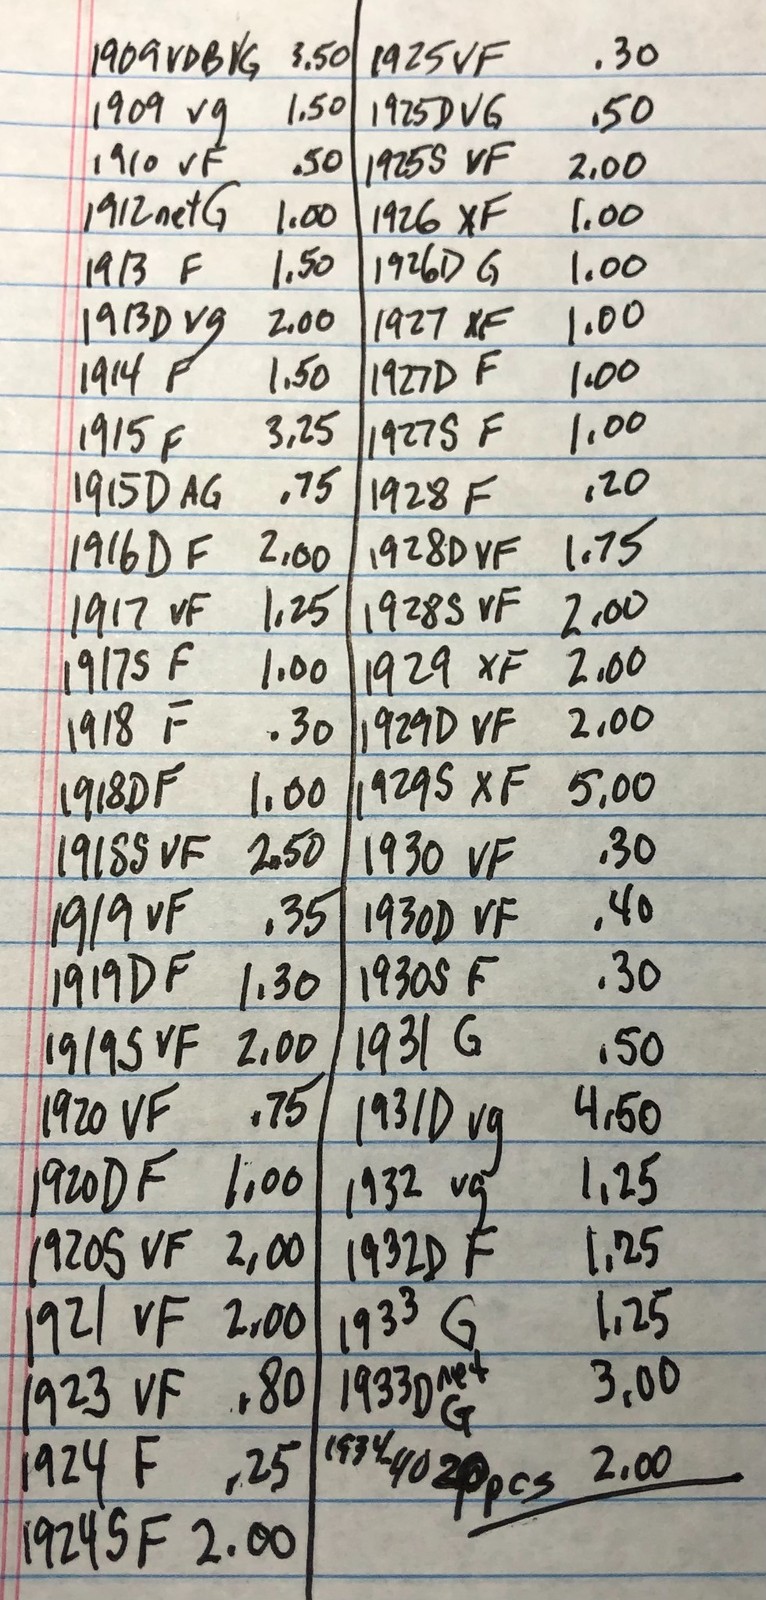 1909VDB VG 3.50
1909 vg 1.50
1910 vF .50
1912 net G 1.00
1913 F 1.50
1913D vg 2.00
1914 F 1.50
1915 F 3.25
1915D AG .75
1916D F 2.00
1917 vF 1.25
1917S F 1.00
1918 F .30
1918D F 1.00
1918S VF 2.50
1919 vF .35
1919D F 1.30
1919S VF 2.00
1920 VF .75
1920D F 1.00
1920S VF 2.00
1921 VF 2.00
1923 VF .80
1924 F .25
1924S F 2.00
1925 VF .30
1925D VG .50
1925S VF 2.00
1926 XF 1.00
1926D G 1.00
1927 XF 1.00
1927D F 1.00
1927S F 1.00
1928 F .20
1928D VF 1.75
1928S VF 2.00
1929 XF 2.00
1929D VF 2.00
1929S XF 5.00
1930 VF .30
1930D VF .40
1930S F .30
1931 G .50
1931D vg 4.50
1932 vg 1.25
1932D F 1.25
1933 G 1.25
1933D net G 3.00
40 pcs 2.00